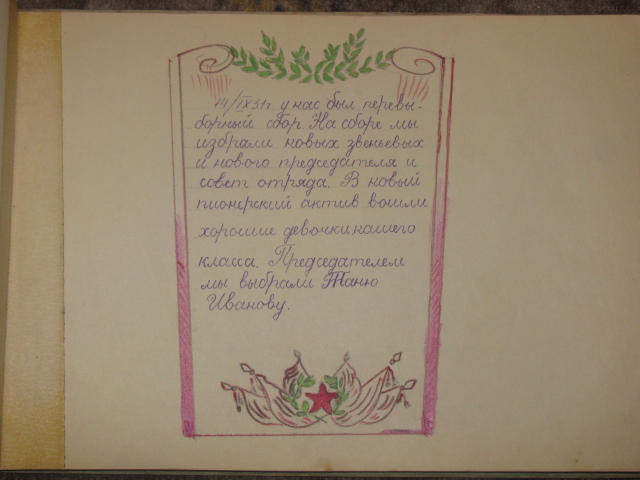 14/IX 51г у нас был перевы-
борный сбор. На сборе мы
избрали новых звеньевых
и нового председателя и
совет отряда. В новый
пионерский актив вошли
хорошие девочки нашего
класса. Председателем
мы выбрали Таню
Иванову.